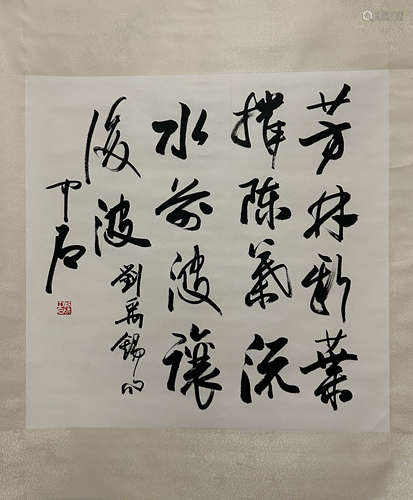 芳林新葉
催陳葉流
水前波讓
後波
劉禹錫句
中石